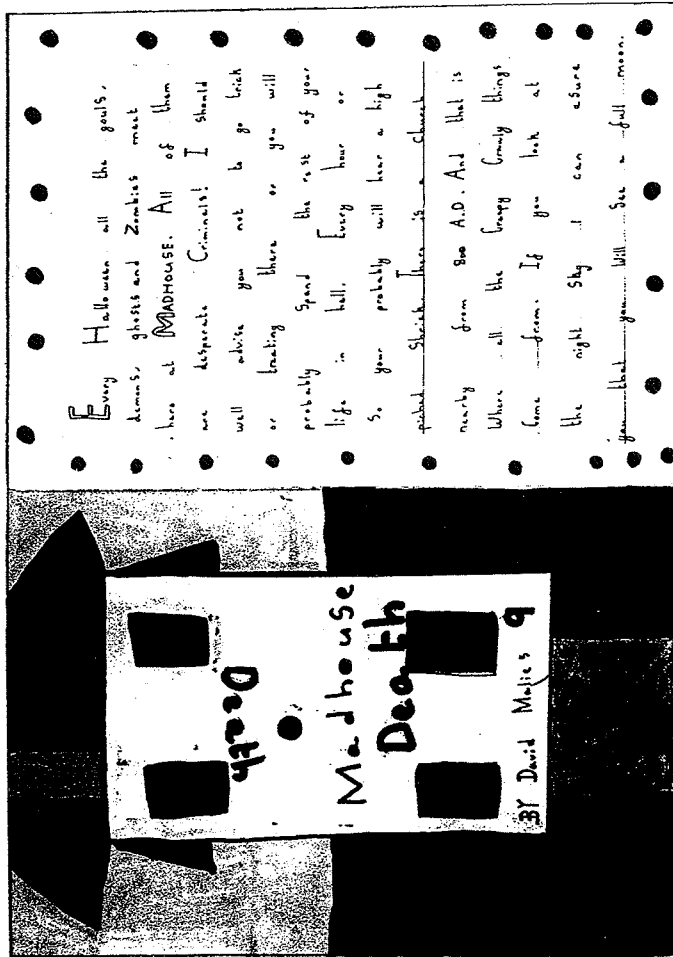 Death
Madhouse
Death
BY David 9
Every Halloween all the gouls,
demons, ghosts and Zombies meet
here at MADHOUSE. All of them
are desperate Criminals! I should
well advise you not to go trick
or treating there or you will
probably Spend the rest of your
life in hell. Every hour or
So your probably will hear a high
piched Shriek. There is a church
nearby from 800 A.D. And that is
Where all the Creepy Crawly things
Come from. If you look at
the night Sky I can asure
you that you Will See a full moon.